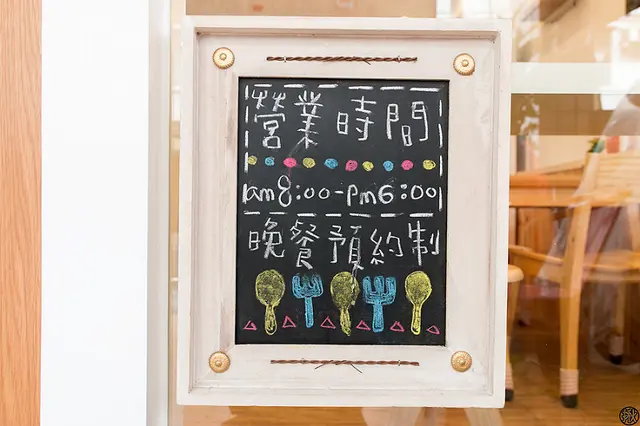 營業時間
am8:00-Pm6:00
晚餐預約制